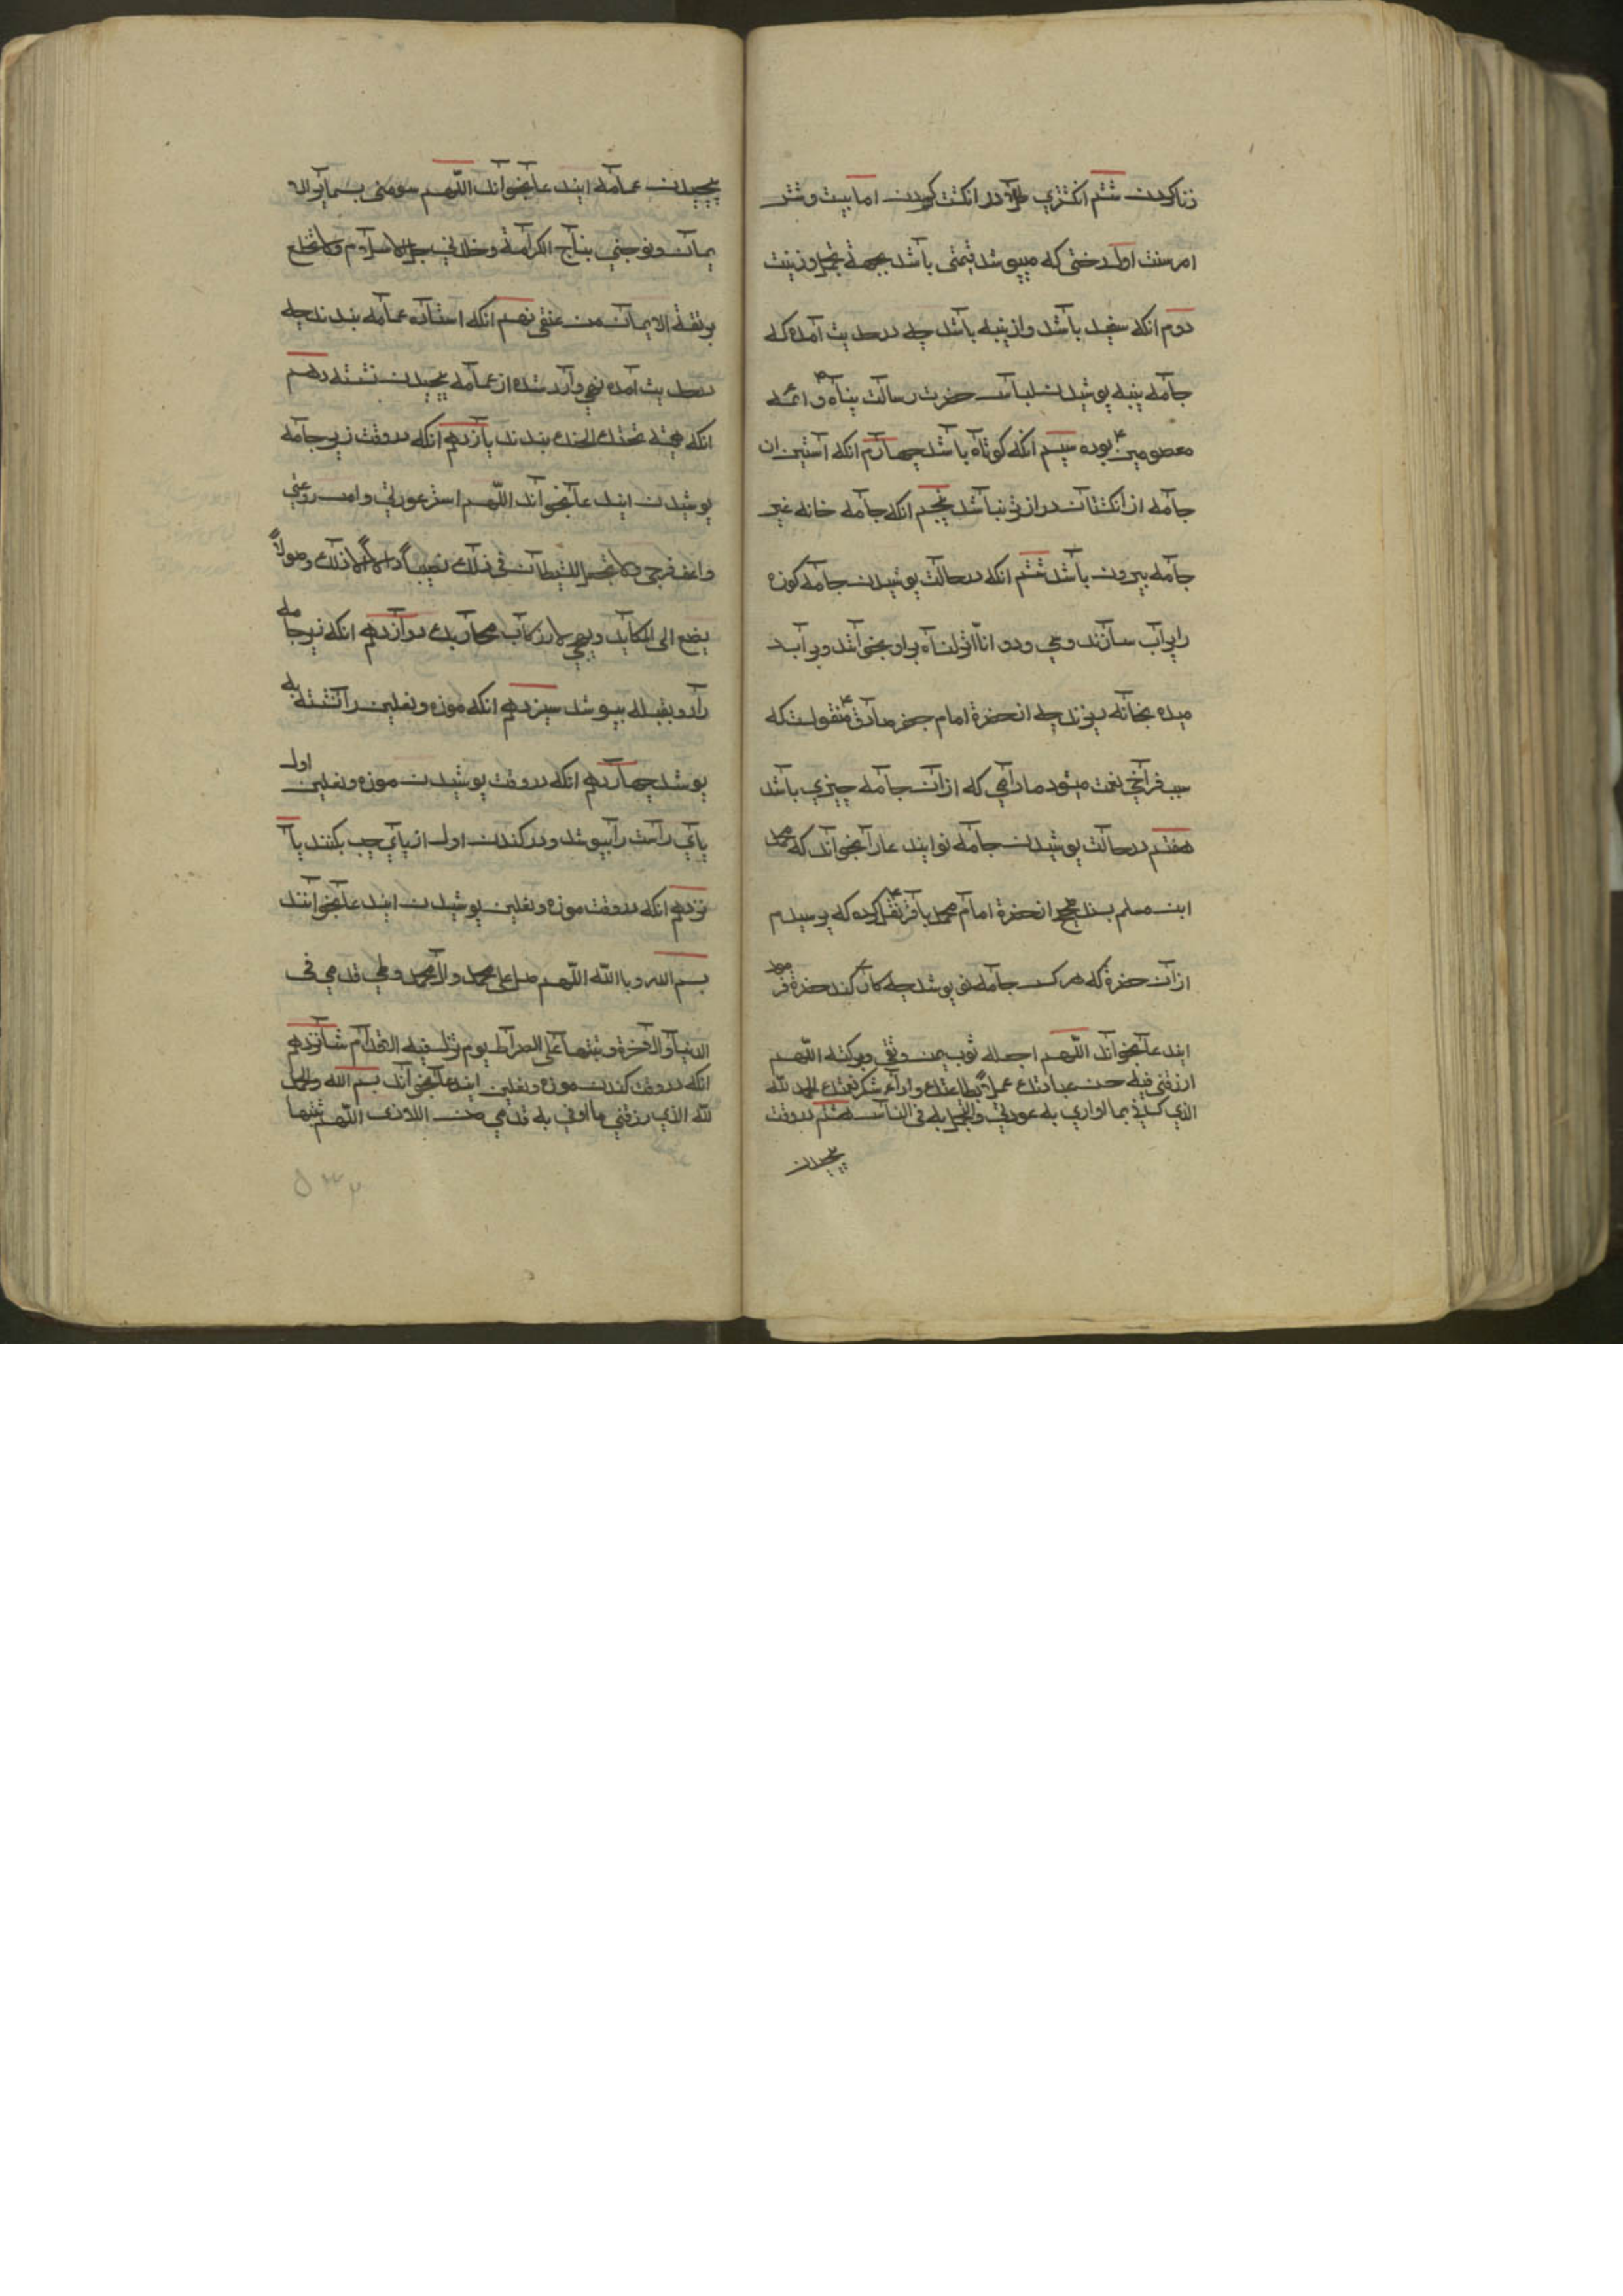 زنا کردن ششم انکشتری طلا در انکشت کردن اما بیست و شش
امر سنت اول رختی که میپوشد قیمتی باشد بجهة تجمل و زینت
دوم انکه سفید باشد و از پنبه باشد چه در حدیث آمده که
جامه پنبه پوشیدن لباس حضرت رسالت پناه و ائمه
معصومین بوده سیم انکه کوتاه باشد چهارم انکه آستین ان
جامه از انکشتان درازتر نباشد پنجم انکه جامه خانه غیر
جامه بیرون باشد ششم انکه در حالت پوشیدن جامه کوزه
را پر آب سازند و سی و دو انا انزلناه بر او بخوانند و بر آب د
میده بخانه بریزند چه از حضرة امام جعفر صادق ع منقولست که
سبب فراخی نعمت میشود مادامی که از ان جامه چیزی باشد
هفتم در حالت پوشیدن جامه نو ایندعا را بخواند که محمد
ابن مسلم بسند صحیح از حضرة امام محمد باقر ع نقل کرده که پرسیدم
از ان حضرة که هر کس جامه نو پوشد چه کار کند حضرة فرمود
ایندعا بخواند اللّهم اجعله ثوب یمن و تقی و برکة اللّهم
ارزقنی فیه حسن عبادتك عملاً بطاعتك و اداء شکر نعمتك الحمد لله
الذي کسانی بما اواری به عورتی و اتجمل به فی الناس هشتم در وقت
پیچیدن
پیچیدن عمامه ایندعا بخواند اللّهم سومنی بسیماء الا
یمان و توجنی بتاج الکرامة و قلدنی حبل الاسلام و لا تخلع
ربقة الایمان من عنقی نهم انکه استاده عمامه بندند چه
در حدیث آمده نهی وارد شده از عمامه پیچیدن نشسته دهم
انکه همیشه تحت الحنك بندند یازدهم انکه در وقت زیر جامه
پوشیدن ایندعا بخواند اللّهم استر عورتی و امن روعتی
و اعف فرجی و لا تجعل للشیطان فی ذلك نصیباً و لا له الی ذلك وصولاً
یضع الی المکاید و یهیجنی لارتکاب محارمك دوازدهم انکه زیر جامه
را رو بقبله بپوشد سیزدهم انکه موزه و نعلین را نشسته به
پوشد چهاردهم انکه در وقت پوشیدن موزه و نعلین اول
پای راست را بپوشد و در کندن اول از پای چپ بکنند پا
نزدهم انکه در وقت موزه و نعلین پوشیدن ایندعا بخوانند
بسم الله و بالله اللّهم صل علی محمد و ال محمد و طی قدمی فی
الدنیا و الاخرة و ثبتهما علی الصراط یوم تزل فیه الاقدام شانزدهم
انکه در وقت کندن موزه و نعلین ایندعا بخواند بسم الله و الحمد
لله الذي رزقنی ما اوقی به قدمی من الاذی اللّهم ثبتهما
۵۳۲